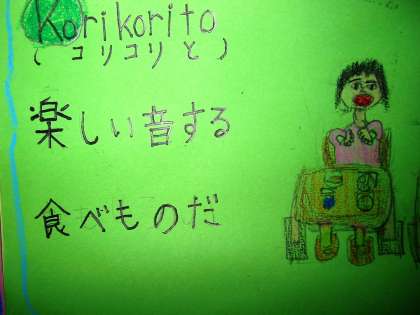 Korikorito
(コリコリと)
楽しい音する
食べものだ